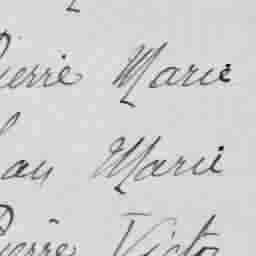 Pierre Marie
Jean Marie
Pierre Victo